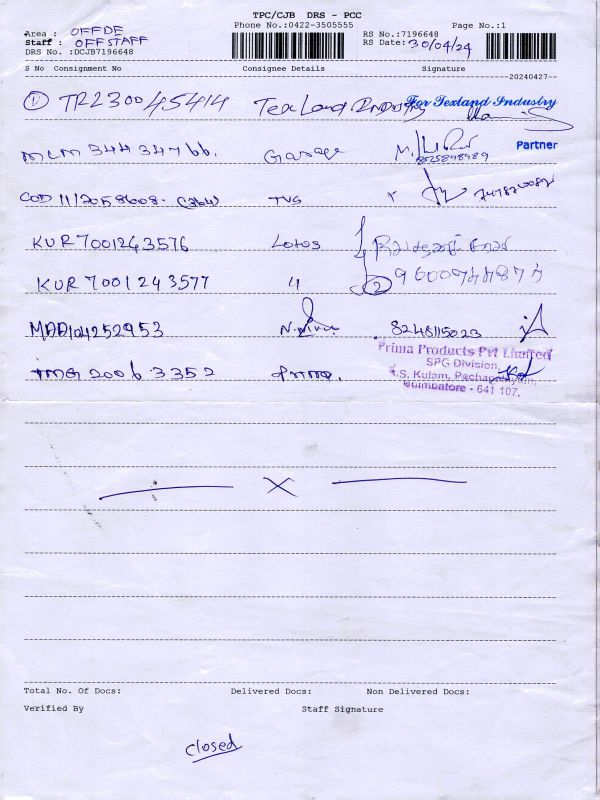 TPC/CJB DRS - PCC
Phone No.:0422-3505555 Page No.:1
Area : OFFDE
Staff : OFFSTAFF
DRS No. :DCJB7196648
RS No.:7196648
RS Date: 30/04/24
S No Consignment No Consignee Details Signature
20240427
① TRZ30045414 TexLand
For Texland Industry
Partner
MCM 344 34766. Garage
COD 11/2058608. TVS
KUR7001243576 Lotos
KUR 7001243577 〃 ② 9600944874
MDD104252953 8248115023
IMG 20063352 Prima.
Prima Products Pvt Limited
SPG Division,
K.S. Kulam, Pachapalayam,
Coimbatore - 641 107.
X
Total No. Of Docs: Delivered Docs: Non Delivered Docs:
Verified By Staff Signature
closed